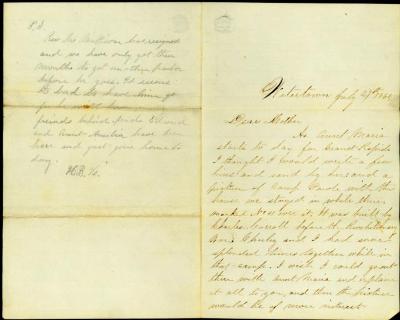 P.S.
Rev Mr has resigned
and we have only got two
months to get another Pastor
before he goes. It seems
to bad to have him go
for he will
friends behind Uncle Edward
and Aunt Amelia have been
here and just gone home to
day.
H.B.
Watertown July
Dear Mother
As Aunt Maria
starts to day for Grand Rapids
I thought I would write a few
lines and send by her and a
picture of Camp Parole with the
house we stayed in while there
marked No over it. It was built by
Charles Carroll before the Revolutionary
War. Charley and I had some
splendid times together while in
that camp. I wish I could go out
there with Aunt Maria and explain
it all to you, and then the picture
would be of more interest